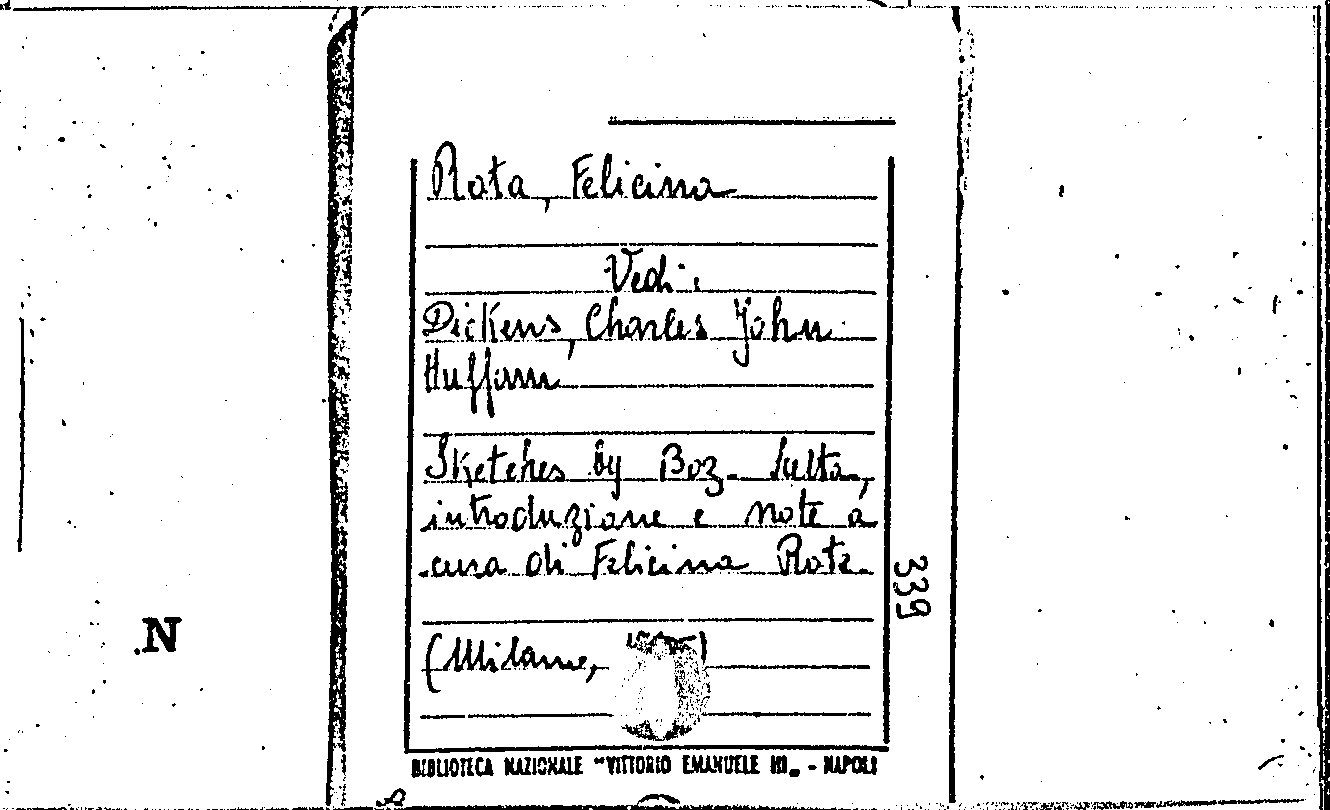 Rota, Felicina
Vedi:
Dickens, Charles John
Huffam
Sketches by Boz. Scelta,
introduzione e note a
cura di Felicina Rota.
(Milano,
339
.N
BIBLIOTECA NAZIONALE "VITTORIO EMANUELE III„ - NAPOLI